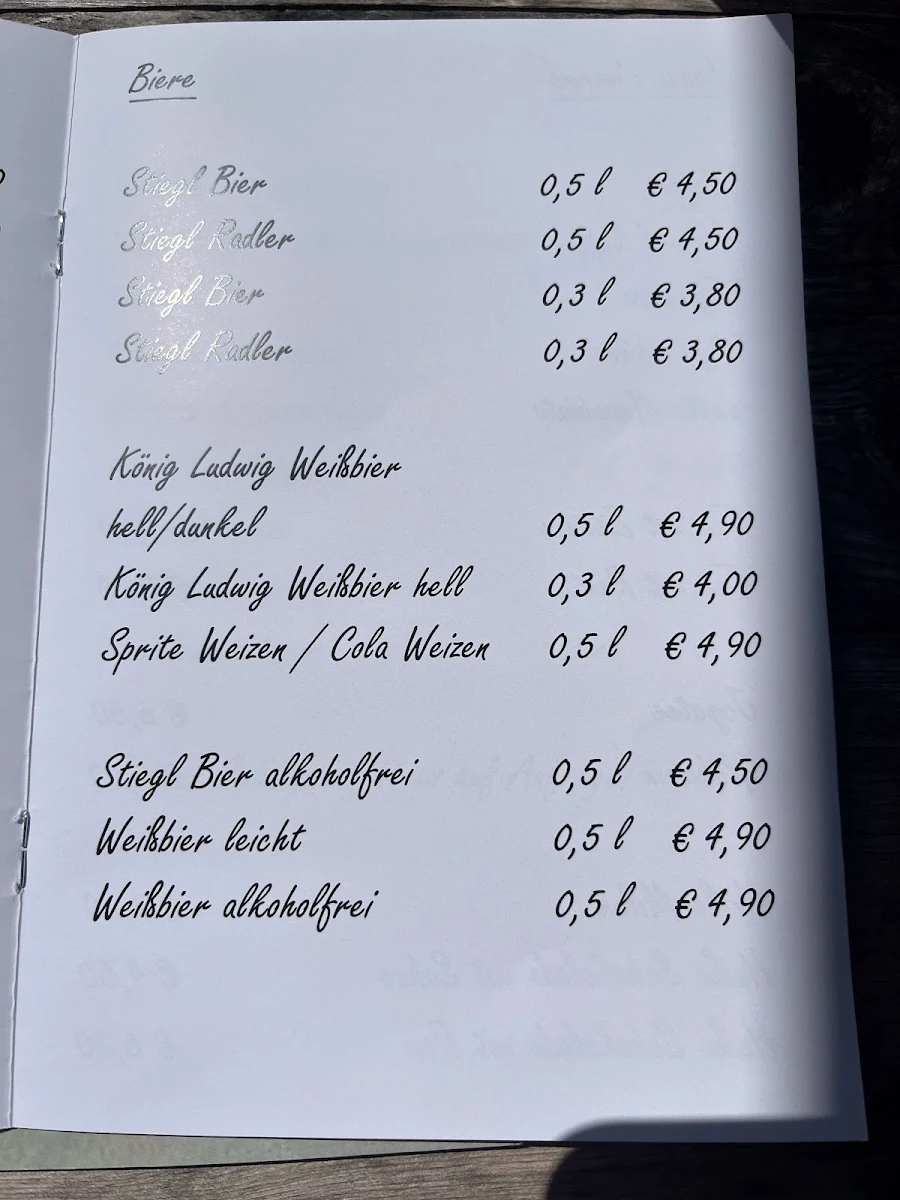 Biere
Stiegl Bier 0,5 l € 4,50
Stiegl Radler 0,5 l € 4,50
Stiegl Bier 0,3 l € 3,80
Stiegl Radler 0,3 l € 3,80
König Ludwig Weißbier
hell/dunkel 0,5 l € 4,90
König Ludwig Weißbier hell 0,3 l € 4,00
Sprite Weizen / Cola Weizen 0,5 l € 4,90
Stiegl Bier alkoholfrei 0,5 l € 4,50
Weißbier leicht 0,5 l € 4,90
Weißbier alkoholfrei 0,5 l € 4,90